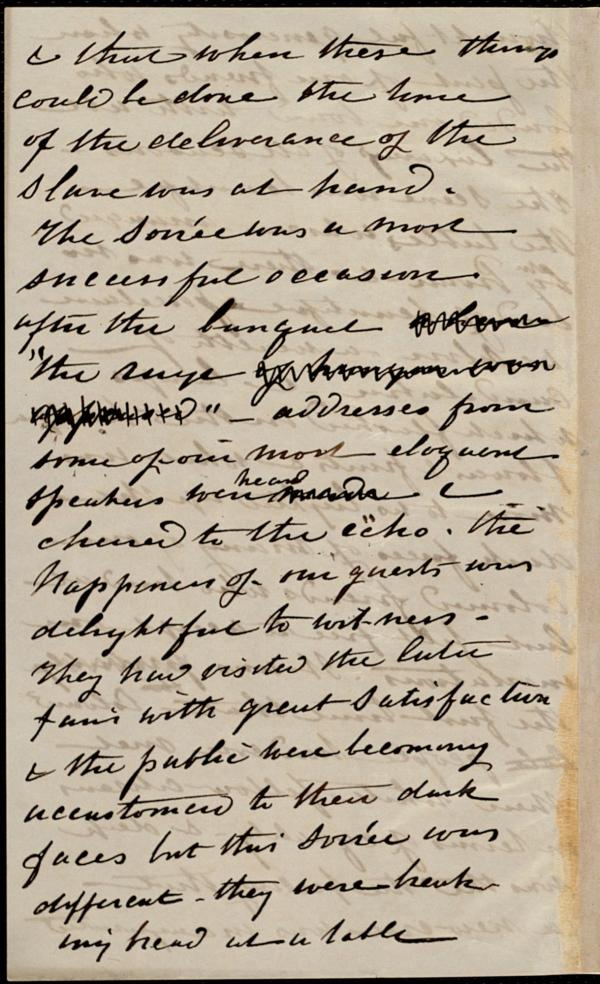 & that when these things
could be done the time
of the deliverance of the
slave was at hand.
The Soirée was a most
successful occasion.
after the banquet
"the rage of hunger
" – addresses from
some of our most eloquent
speakers were heard made &
cheered to the ëcho. The
happiness of our guests was
delightful to witness –
They had visited the later
fairs with great satisfaction
& the public were becoming
accustomed to their dark
faces but this Soirée was
different – they were break-
ing bread at a table